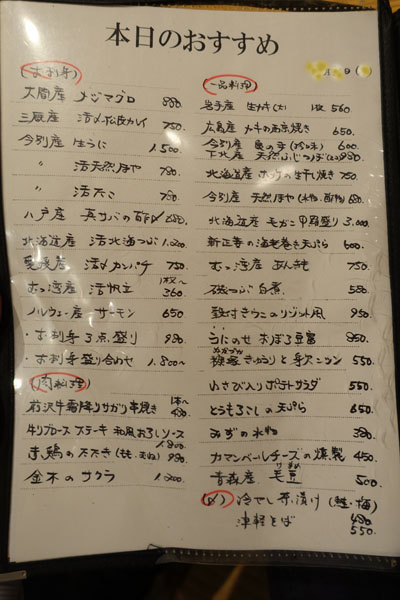 本日のおすすめ
(お刺身)
大間産 メジマグロ 880
三厩産 活〆松皮カレイ 750
今別産 生うに 1,500
〃 活天然ほや 780
〃 活たこ 780
八戸産 真サバの
北海道産 活北海つぶ 1,200
愛媛産 活〆カンパチ 750
むつ湾産 活帆立 1枚〜 360
ノルウェー産 サーモン 650
・お刺身3点盛り 980
・お刺身盛り合わせ 1,800〜
(肉料理)
前沢牛霜降りサガリ串焼き 1本〜 480
牛リブロースステーキ 和風おろしソース
1,800
赤鶏のたたき(もも、むね) 980
金木のサクラ 1,200
(一品料理)
岩手産 生カキ(大) 1枚 560
広島産 カキの 焼き 650
今別産 亀の手(珍味) 600
下北産 天然ふじつぼ
北海道産 ホッケの生干し焼き 750
今別産 天然ほや(水物、酢物) 680
北海道産 毛ガニ甲羅盛り 3,000
海老巻き天ぷら 600
むつ湾産 あん肝 750
磯つぶ旨煮 550
殻付きうにのリゾット風 950
うにのせ おぼろ豆腐 850
きゅうりと 550
わさび入りポテトサラダ 550
とうもろこしの天ぷら 650
みずの水物 380
カマンベールチーズの燻製 450
青森産 毛豆 500
(〆) 冷やし茶漬け(鮭・梅)
480
津軽そば 550